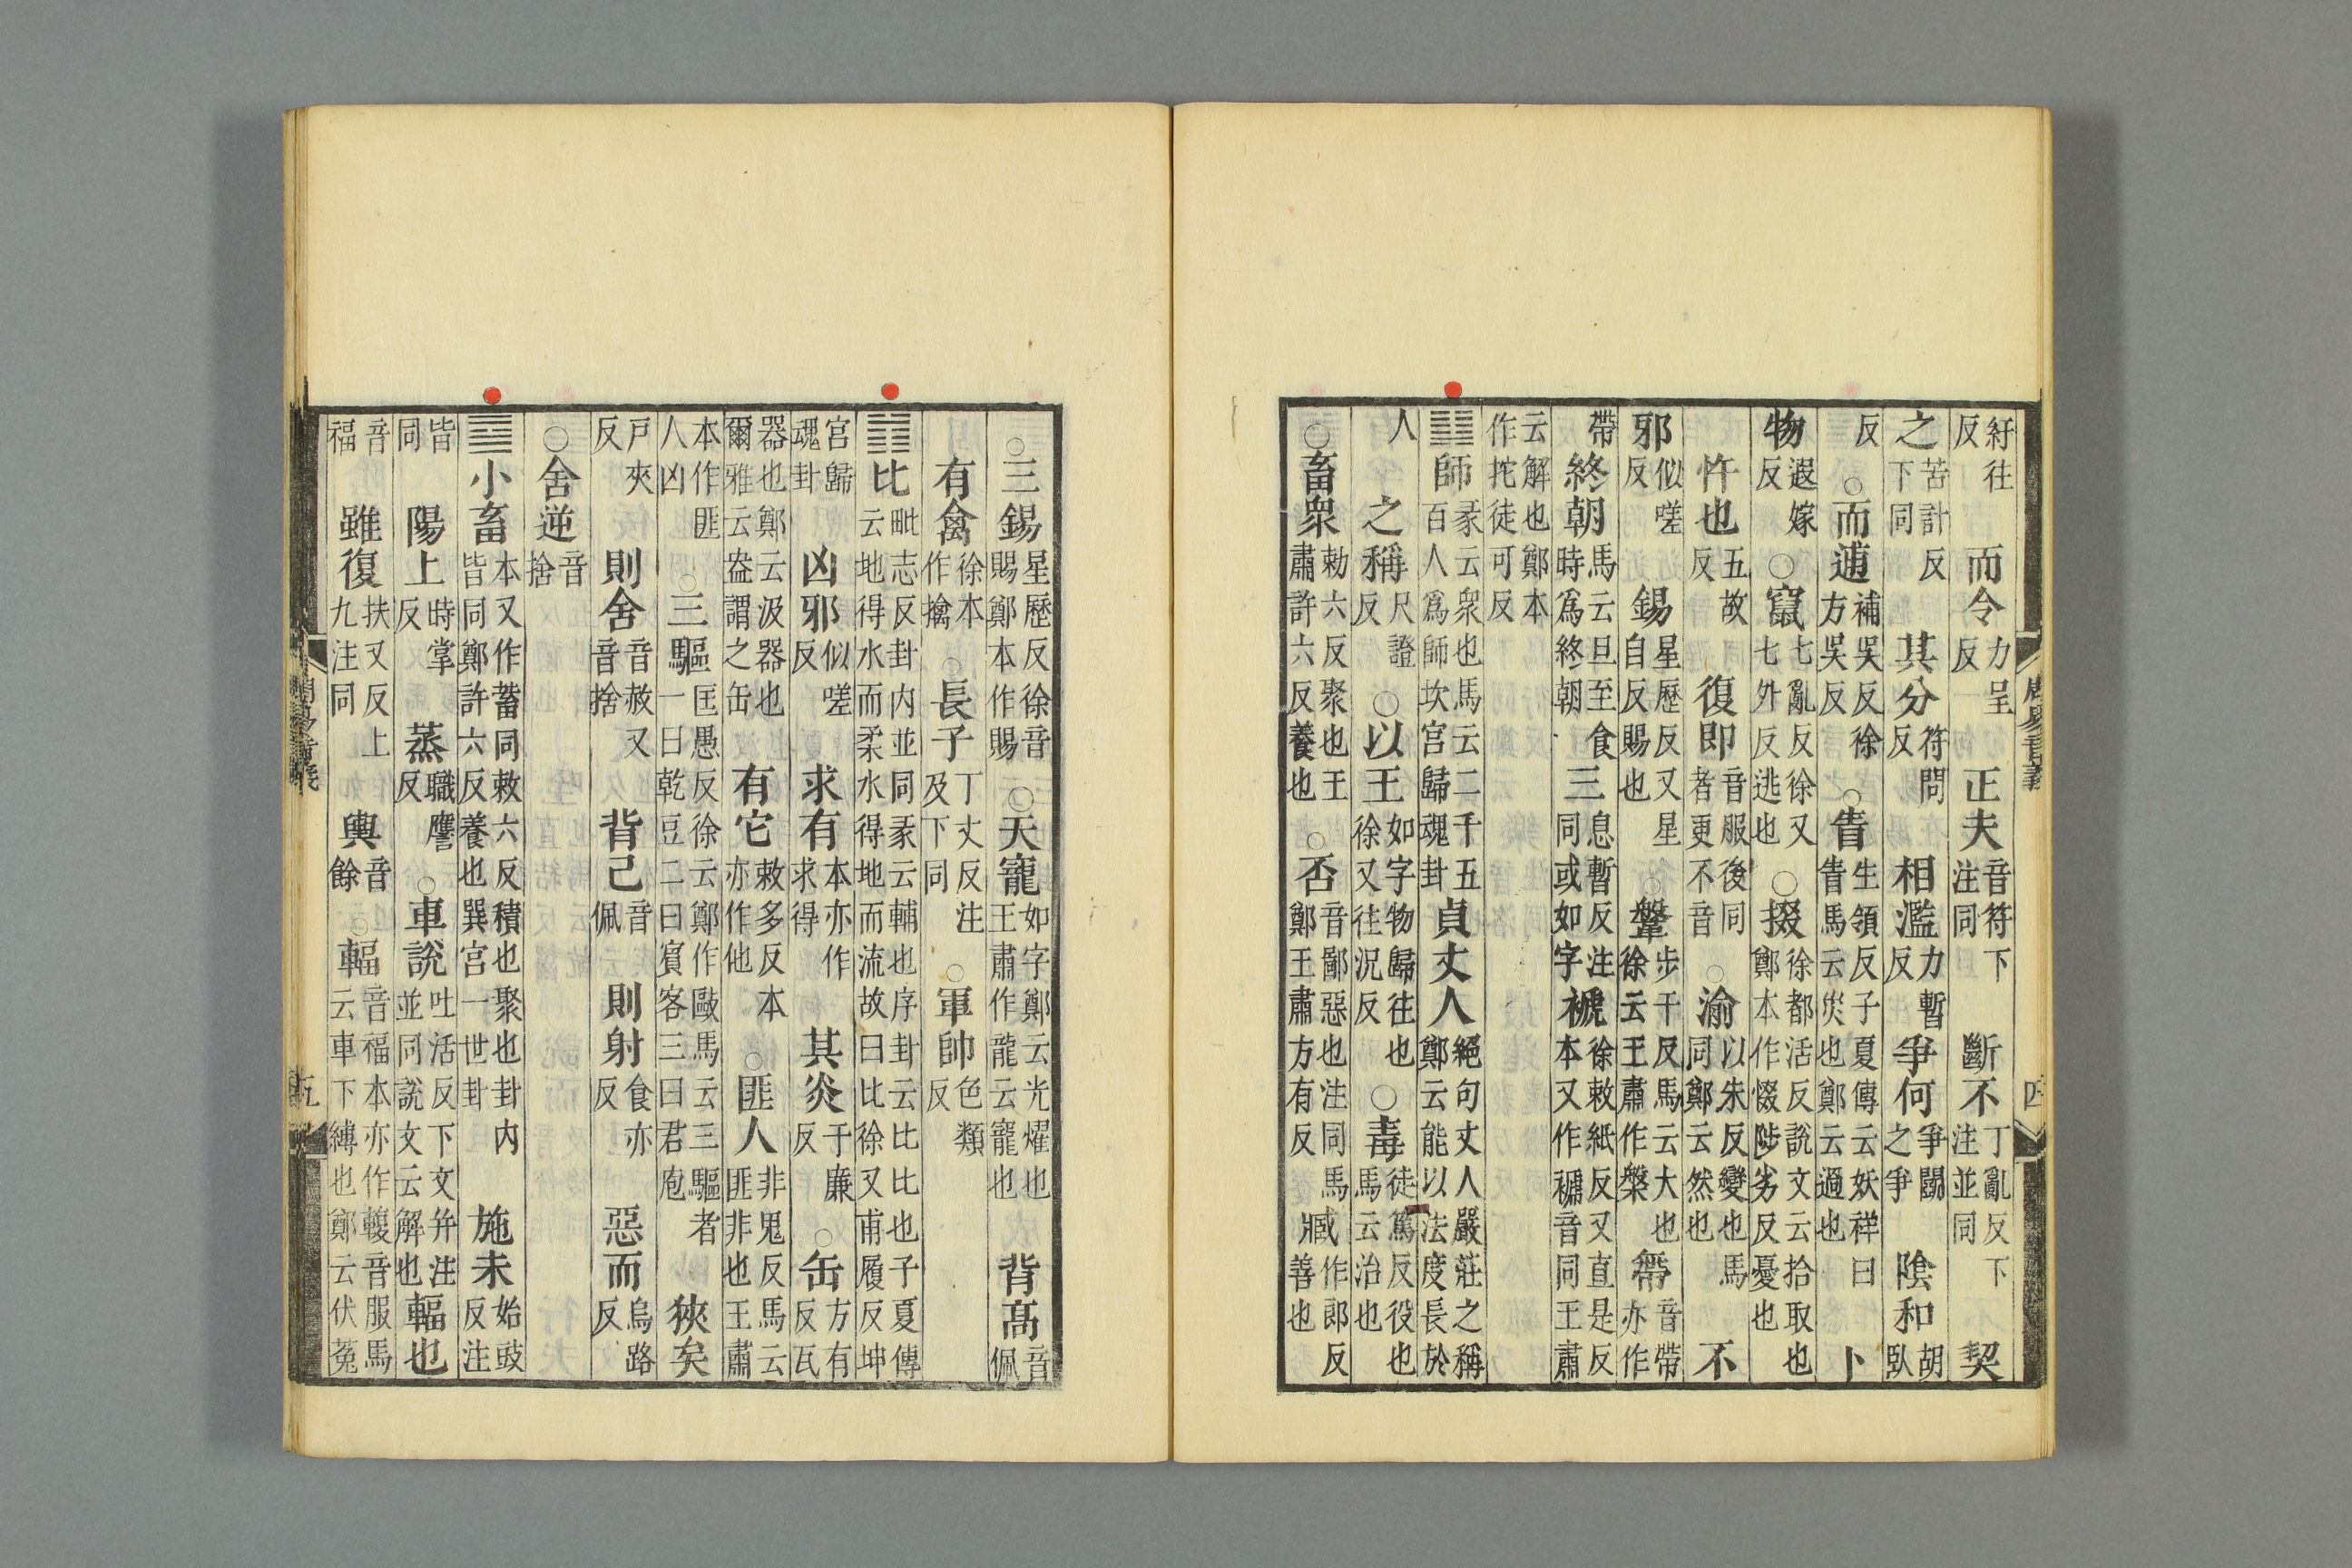 紆往反 而令力呈反 正夫音符下注同 斷不丁亂反下注並同 契
之苦計反下同 其分符問反 相濫力暫反 爭何爭鬭之爭 隂和胡臥
反 ○而逋補吳反徐方吳反 ○眚生領反子夏傳云妖祥曰眚馬云灾也鄭云過也 卜
物遐嫁反 ○竄七亂反徐又七外反逃也 ○掇徐都活反說文云拾取也鄭本作惙陟劣反憂也
忤也五故反 復即音服後同者更不音 ○渝以朱反變也馬同鄭云然也 不
邪似嗟反 錫星歷反又星自反賜也 ○鞶步干反馬云大也徐云王肅作槃 帶音帶亦作
帶 終朝馬云旦至食時爲終朝 三息暫反注同或如字 褫徐敕紙反又直是反本又作褫音同王肅
云解也鄭本作拕徒可反
䷆師彖云衆也馬云二千五百人爲師坎宮歸魂卦 貞丈人絕句丈人嚴莊之稱鄭云能以法度長於
人 之稱尺證反 ○以王如字物歸往也徐又往況反 ○毒徒篤反役也馬云治也
○畜衆勑六反聚也王肅許六反養也 ○否音鄙惡也注同馬鄭王肅方有反 臧作郎反善也
周易音義 四
○三錫星歷反徐音賜鄭本作賜 ○天寵如字鄭云光燿也王肅作龍云寵也 背高音佩
有禽徐本作擒 ○長子丁丈反注及下同 ○軍帥色類反
䷇比毗志反卦内並同彖云輔也序卦云比比也子夏傳云地得水而柔水得地而流故曰比徐又甫履反坤
宮歸魂卦 凶邪似嗟反 求有本亦作求得 其炎于廉反 ○缶方有反瓦
器也鄭云汲器也爾雅云盎謂之缶 有它敕多反本亦作他 ○匪人非鬼反馬云匪非也王肅
本作匪人凶 ○三驅匡愚反徐云鄭作敺馬云三驅者一曰乾豆二曰賓客三曰君庖 狹矣
戸夾反 則舍音赦又音捨 背己音佩 則射食亦反 惡而烏路反
○舍逆音捨
䷈小畜本又作蓄同敕六反積也聚也卦内皆同鄭許六反養也巽宮一世卦 施未始豉反注
皆同 陽上時掌反 蒸職膺反 ○車說吐活反下文并注並同說文云解也 輻也
音福 雖復扶又反上九注同 輿音餘 ○輻音福本亦作輹音服馬云車下縛也鄭云伏菟
周易音義 五